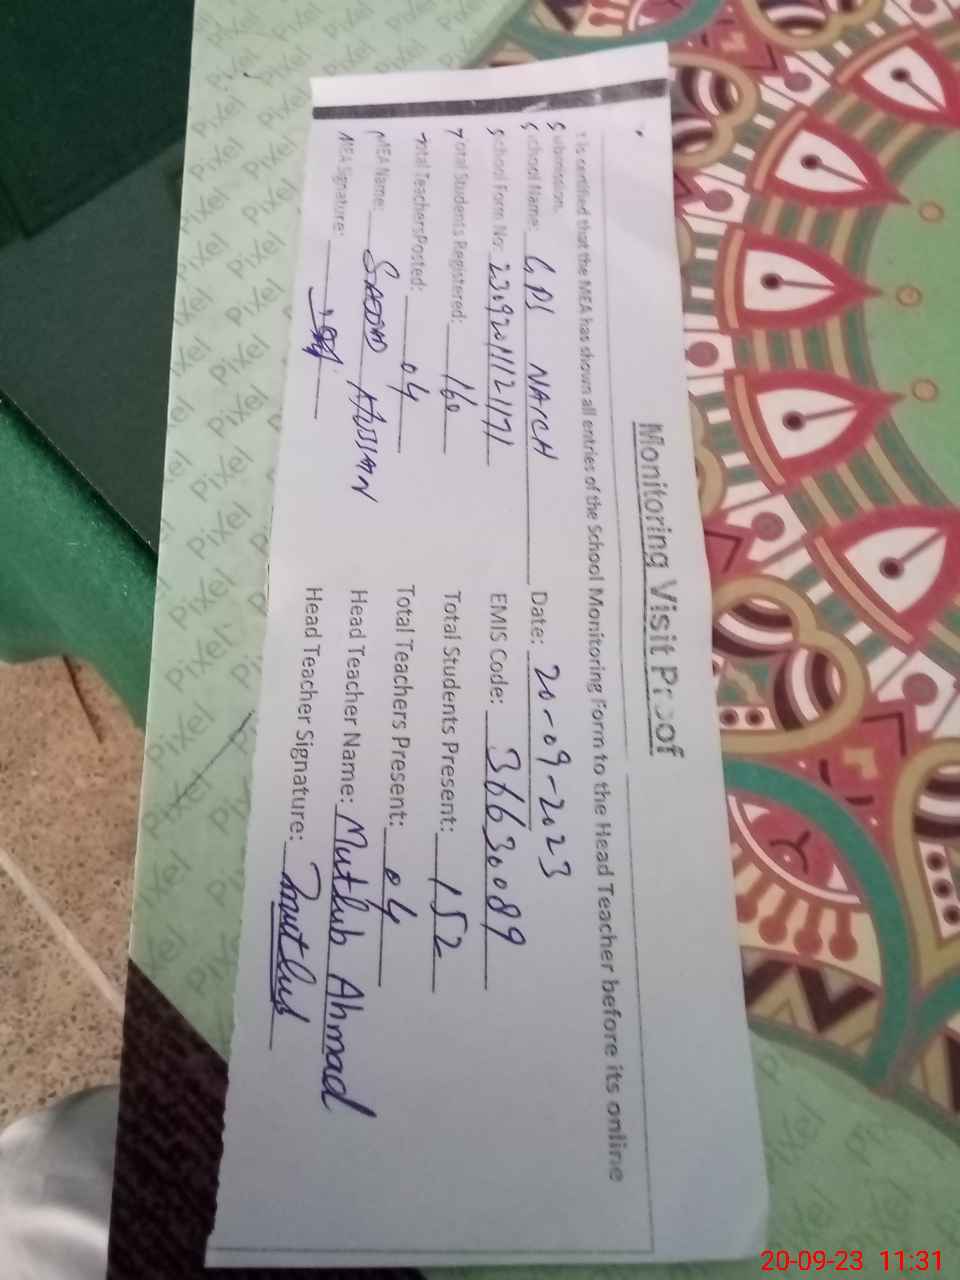 Monitoring Visit Proof
It is certified that the MEA has shown all entries of the School Monitoring Form to the Head Teacher before its online
Submission.
School Name: GPS NARCH Date: 20-09-2023
School Form No: EMIS Code: 36630089
Total Students Registered: 160 Total Students Present: 152
Total Teachers Posted: 04 Total Teachers Present: 04
MEA Name: HUSSAIN Head Teacher Name: Mutlub Ahmad
MEA Signature: Head Teacher Signature: Mutlub
Pixel
20-09-23 11:31